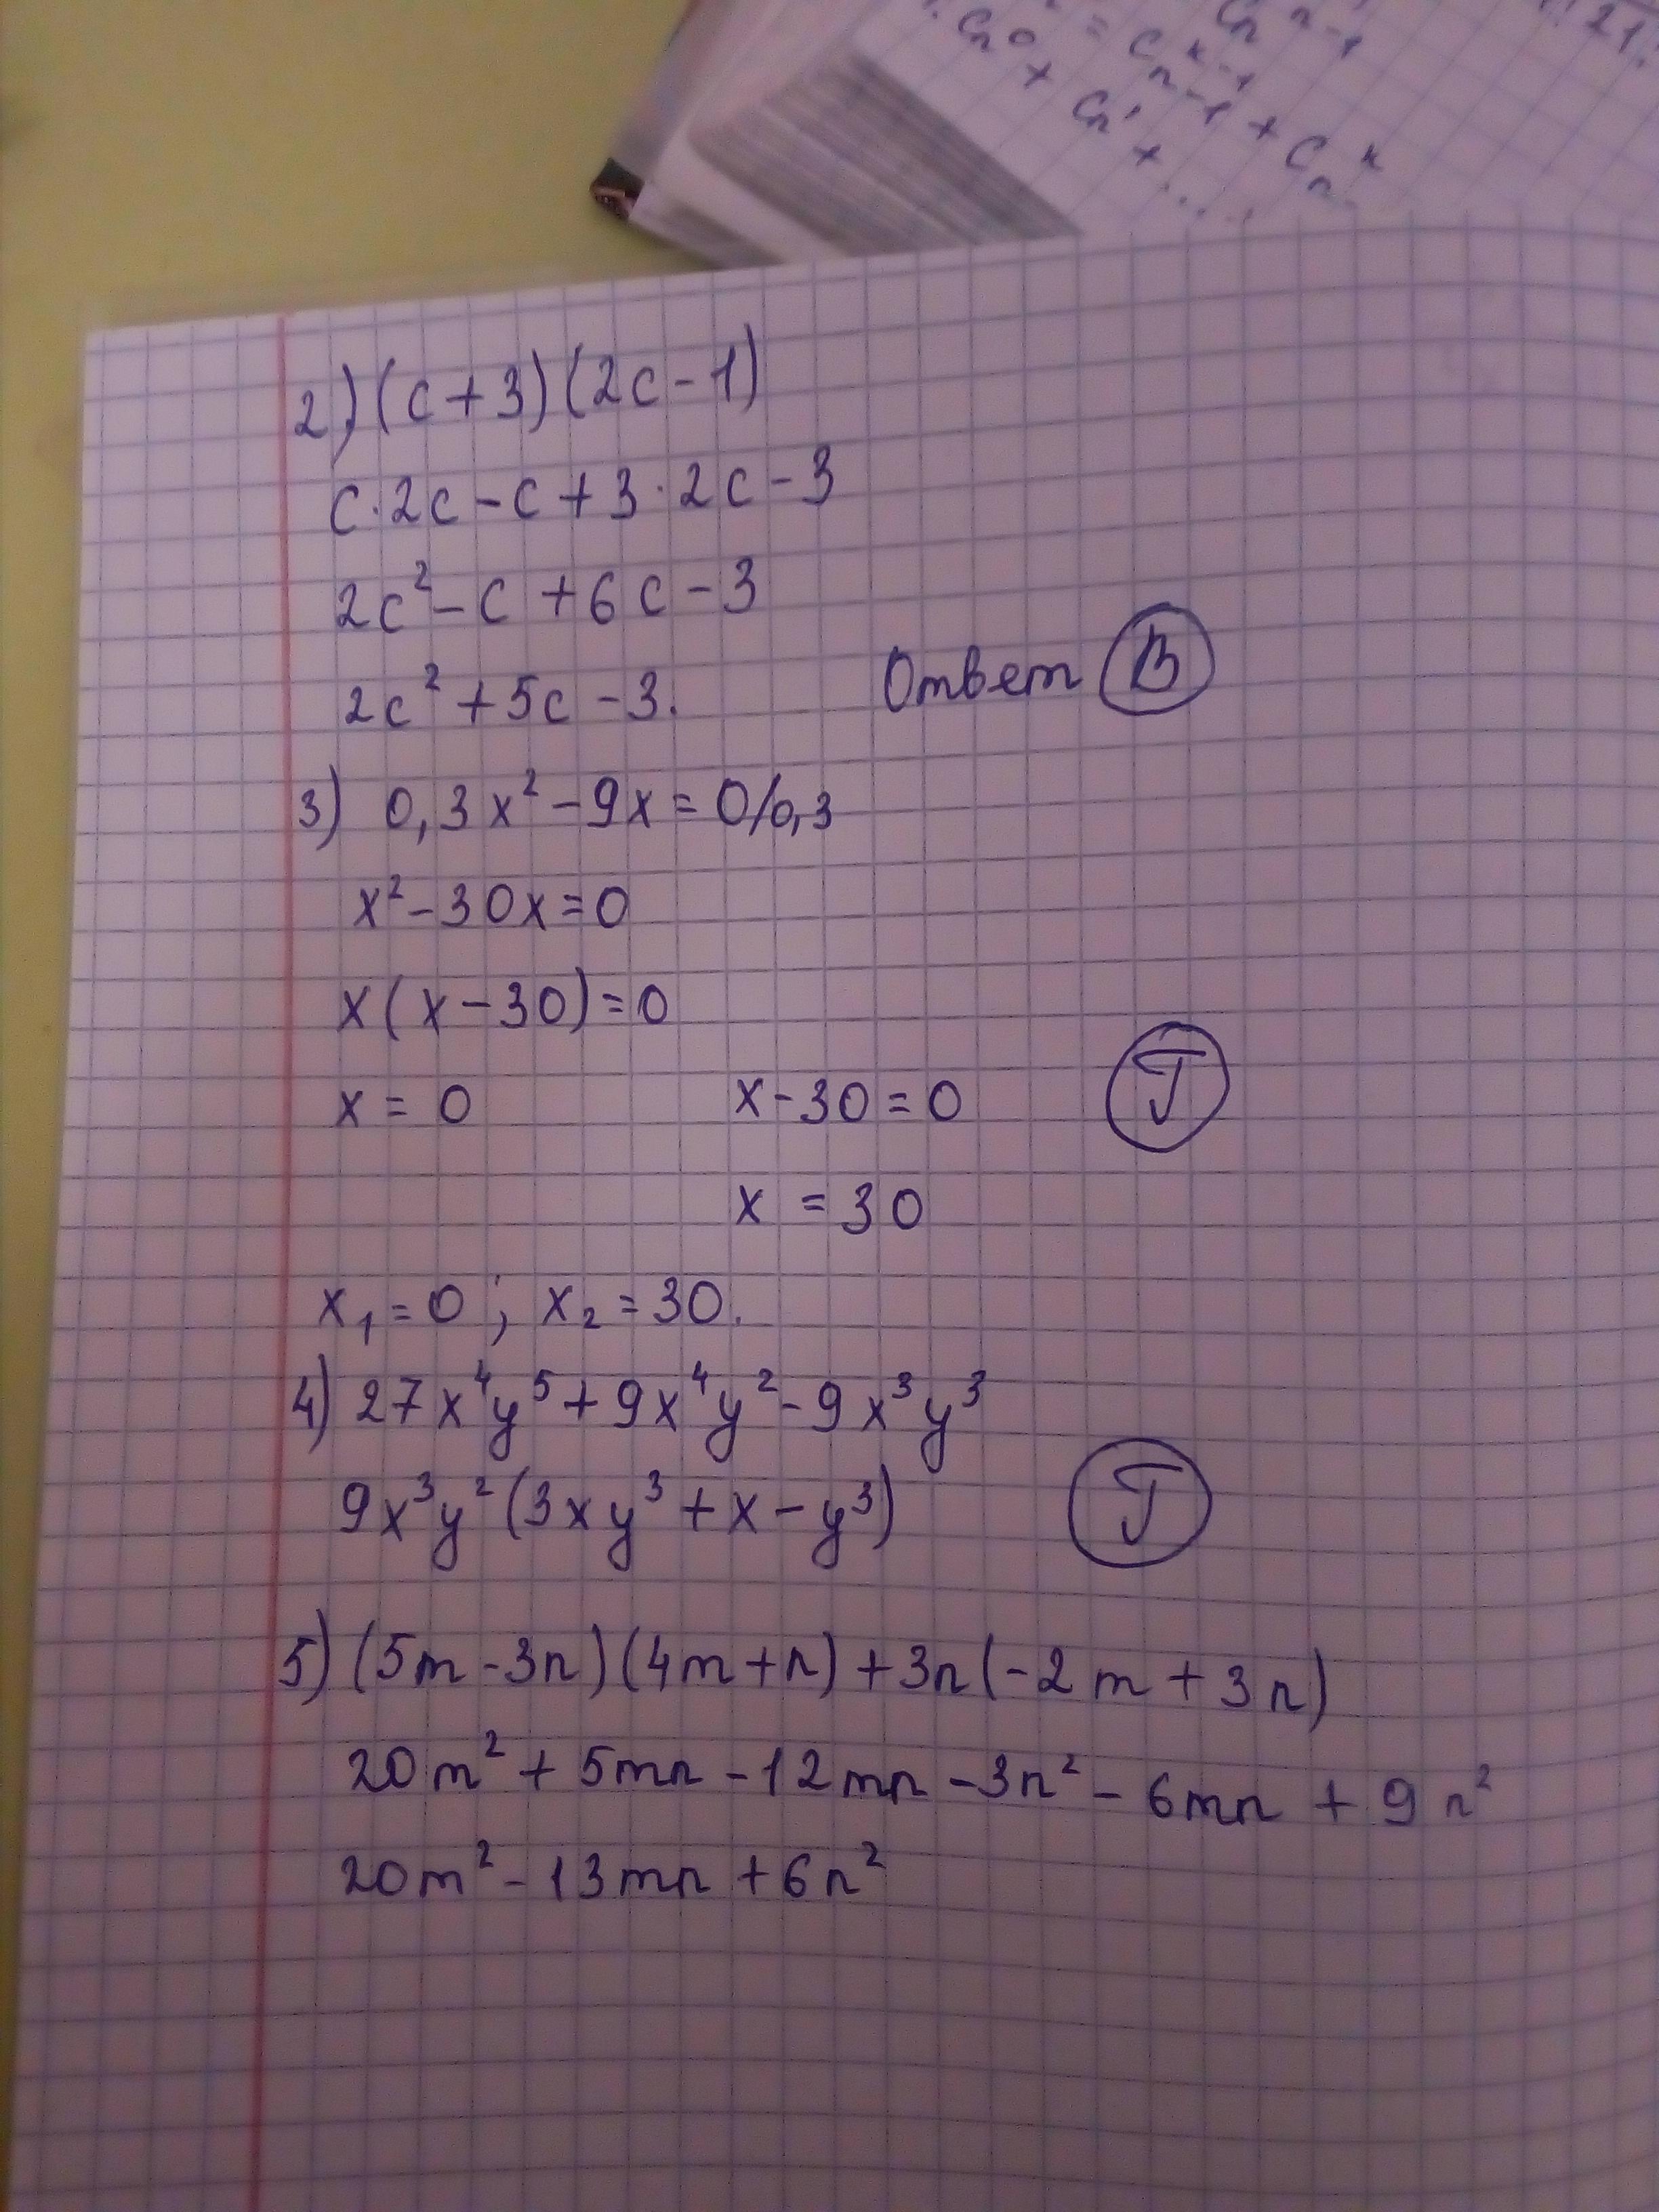 2) (c + 3) (2c - 1)
c · 2c - c + 3 · 2c - 3
2c² - c + 6c - 3
2c² + 5c - 3. Ответ В
3) 0,3x² - 9x = 0 /0,3
x² - 30x = 0
x (x - 30) = 0
x = 0 x - 30 = 0 Г
x = 30
x₁ = 0 ; x₂ = 30.
4) 27x⁴y⁵ + 9x⁴y² - 9x³y³
9x³y² (3xy³ + x - y³) Г
5) (5m - 3n) (4m + n) + 3n (-2m + 3n)
20m² + 5mn - 12mn - 3n² - 6mn + 9n²
20m² - 13mn + 6n²